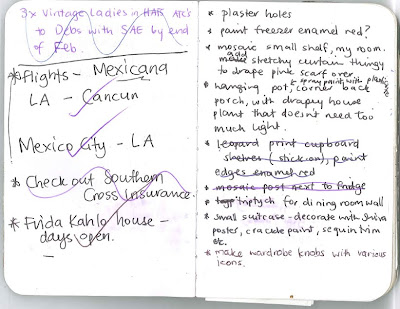 3x Vintage Ladies in HATS ATC's
to Debs with SAE by end
of Feb.
* flights - Mexicana
LA - Cancun
Mexico City - LA
* Check out Southern
Cross Insurance.
* Frida Kahlo house -
days open.
* plaster holes
* paint freezer enamel red?
* mosaic small shelf, my room.
* add stretchy curtain thingy
to drape pink scarf over.
* hanging pot, corner back
porch, with drapey house
plant that doesnt need too
much light.
* leopard print cupboard
shelves (stick on), paint
edges enamel red
* mosaic post next to fridge
* triptych for dining room wall
* small suitcase - decorate with Shiva
poster, crackle paint, sequin trim
etc.
* make wardrobe knobs with various
icons.